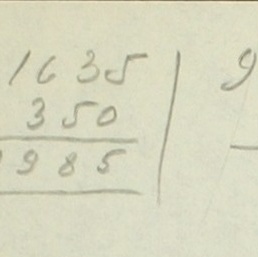 1635
350
1985
9